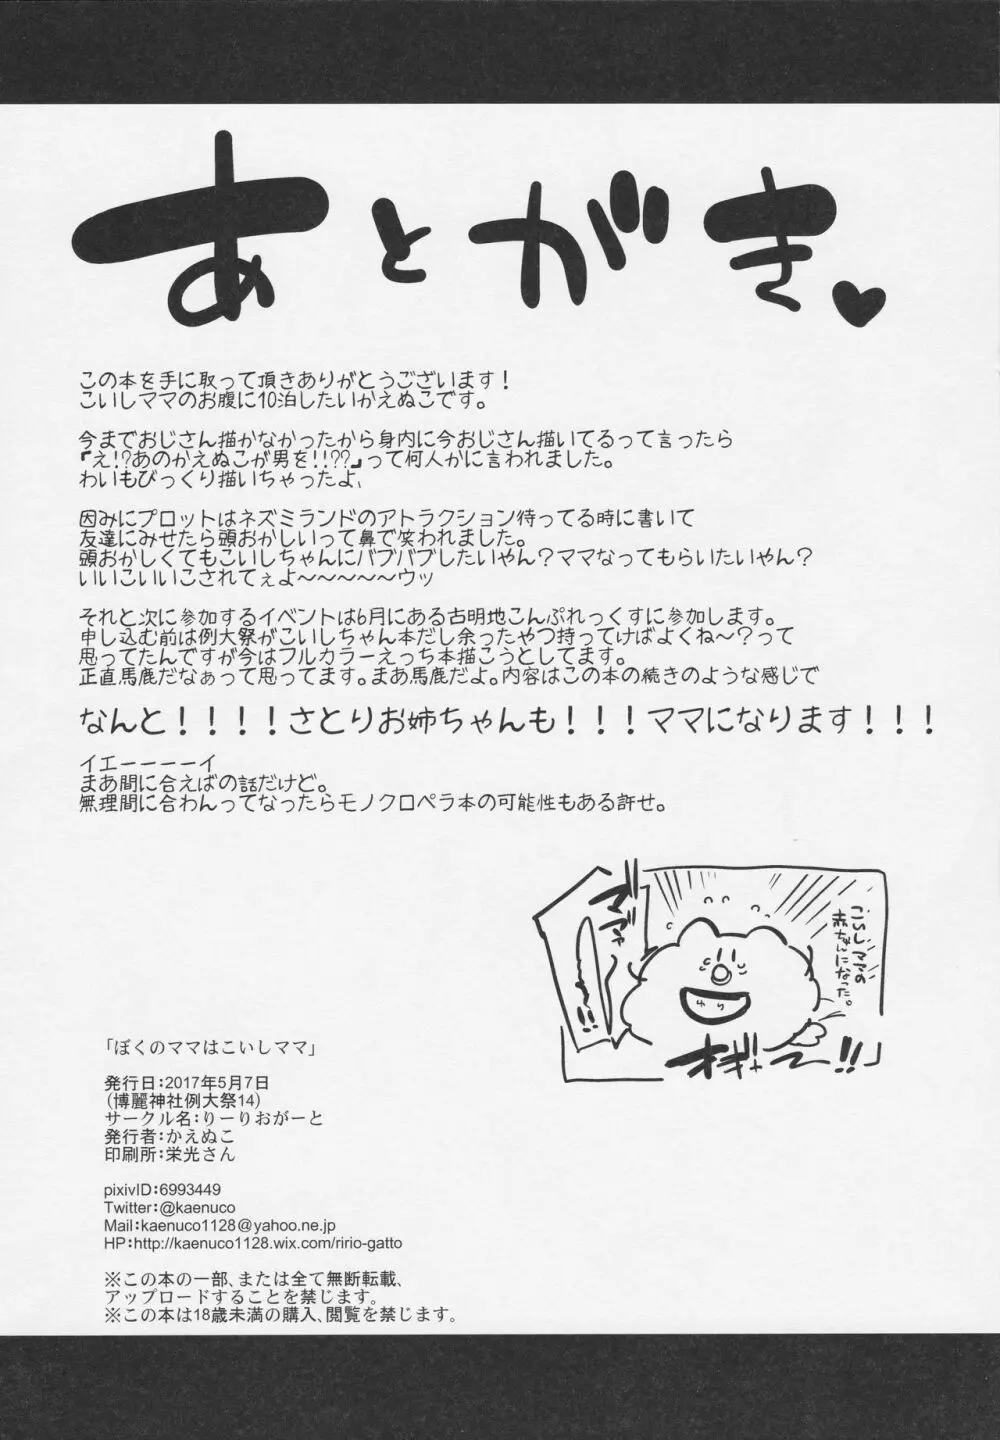 あとがき♥
この本を手に取って頂きありがとうございます！
こいしママのお腹に10泊したいかえぬこです。
今までおじさん描かなかったから身内に今おじさん描いてるって言ったら
『え!?あのかえぬこが男を!!??』って何人かに言われました。
わいもびっくり描いちゃったよ、
因みにプロットはネズミランドのアトラクション待ってる時に書いて
友達にみせたら頭おかしいって鼻で笑われました。
頭おかしくてもこいしちゃんにバブバブしたいやん？ママなってもらいたいやん？
いいこいいこされてぇよ〜〜〜〜〜ウッ
それと次に参加するイベントは6月にある古明地こんぷれっくすに参加します。
申し込む前は例大祭がこいしちゃん本だし余ったやつ持ってけばよくね〜？って
思ってたんですが今はフルカラーえっち本描こうとしてます。
正直馬鹿だなぁって思ってます。まあ馬鹿だよ。内容はこの本の続きのような感じで
なんと！！！！さとりお姉ちゃんも！！！ママになります！！！
イエーーーーイ
まあ間に合えばの話だけど。
無理間に合わんってなったらモノクロペラ本の可能性もある許せ。
こいしママの
赤ちゃんになった。
ママァ
ゆり
オギャー!!」
「ぼくのママはこいしママ」
発行日：2017年5月7日
（博麗神社例大祭14）
サークル名：りーりおがーと
発行者：かえぬこ
印刷所：栄光さん
pixivID：6993449
Twitter：@kaenuco
Mail：kaenuco1128@yahoo.ne.jp
HP：http://kaenuco1128.wix.com/ririo-gatto
※この本の一部、または全て無断転載、
アップロードすることを禁じます。
※この本は18歳未満の購入、閲覧を禁じます。